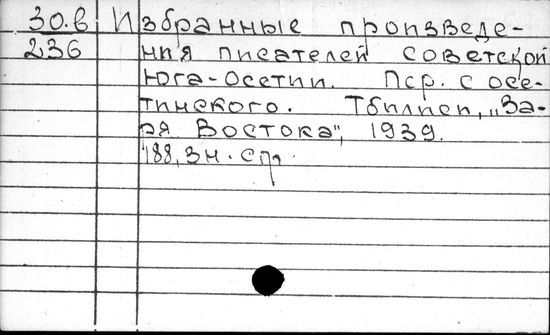 30.в Избранные произведе-
236 ния писателей советской
Юга-Осетии. Пер. с осе-
тинского. Тбилиси, „За-
ря Востока", 1939.
188, 3 н. стр.